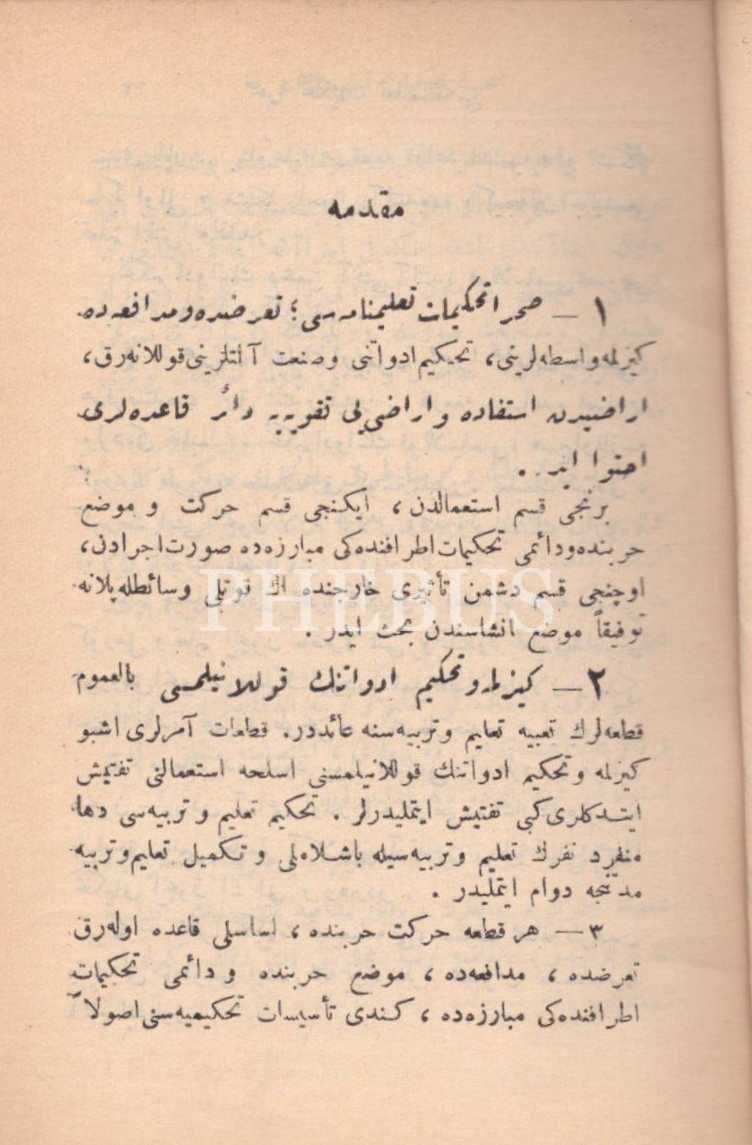 مقدمه
١ — صحرا تحکیمات تعلیمنامه‌سی؛ تعرضده و مدافعه‌ده
کیزلمه واسطه‌لرینی، تحکیم ادواتنی وصنعت آلتلرینی قوللانه‌رق،
اراضیدن استفاده و اراضی‌یی تقویه‌یه دائر قاعده‌لری
احتوا ایدر.
برنجی قسم استعمالدن، ایکنجی قسم حرکت و موضع
حربنده ودائمی تحکیمات اطرافنده‌کی مبارزه‌ده صورت اجرادن،
اوچنجی قسم دشمن تأثیری خارجنده اك قوتلی وسائطله پلانه
توفیقاً موضع انشاسندن بحث ایدر.
PHEBUS
٢ — کیزلمه وتحکیم ادواتنك قوللانیلمسی بالعموم
قطعه‌لرك تعبیه تعلیم وتربیه‌سنه عائددر. قطعات آمرلری اشبو
کیزلمه وتحکیم ادواتنك قوللانیلمسنی اسلحه استعمالنی تفتیش
ایتدکلری کبی تفتیش ایتملیدرلر. تحکیم تعلیم وتربیه‌سی دها
منفرد نفرك تعلیم وتربیه‌سیله باشلاملی و تکمیل تعلیم وتربیه
مدتنجه دوام ایتملیدر.
٣ — هر قطعه حرکت حربنده، اساسلی قاعده اوله‌رق
تعرضده، مدافعه‌ده، موضع حربنده ودائمی تحکیمات
اطرافنده‌کی مبارزه‌ده، کندی تأسیسات تحکیمیه‌سنی اصولاً